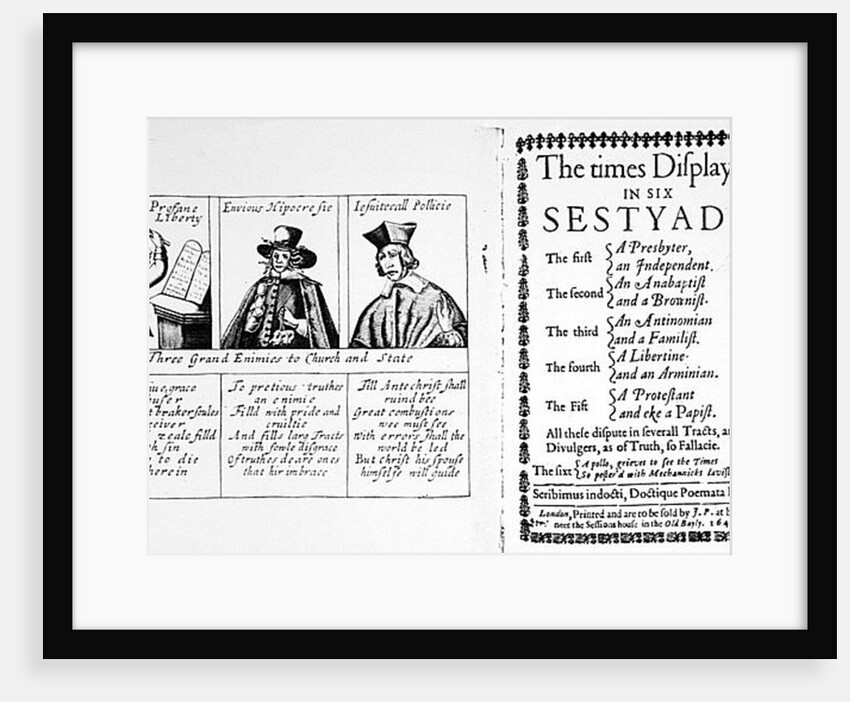 Profane
Liberty
Envious Hipocresie
Iesuiticall Pollicie
Three Grand Enimies to Church and State
grace
brakersoules
zeale filld
sin
to die
herein
To pretious truthes
an enimie
Filld with pride and
crueltie
And fills larg Tracts
with fowle disgrace
Of truthes deare ones
that hir imbrace
Till Antechrist shall
ruind bee
Great combustions
wee must see
With errors shall the
world be led
But Christ his spouse
himselfe will guide
The times Diſplay
IN SIX
SESTYAD
The firſt
A Presbyter,
an Independent.
The ſecond
An Anabaptiſt
and a Browniſt.
The third
An Antinomian
and a Familiſt.
The fourth
A Libertine
and an Arminian.
The Fift
A Proteſtant
and eke a Papiſt.
All theſe diſpute in ſeverall Tracts,
Divulgers, as of Truth, ſo Fallacie.
The ſixt
Apollo, grieves to ſee the Times
So peſter'd with Mechannicks
Scribimus indocti, Doctique Poemata
London, Printed and are to be ſold by J. P. at
neer the Seſſions houſe in the Old Bayly. 164